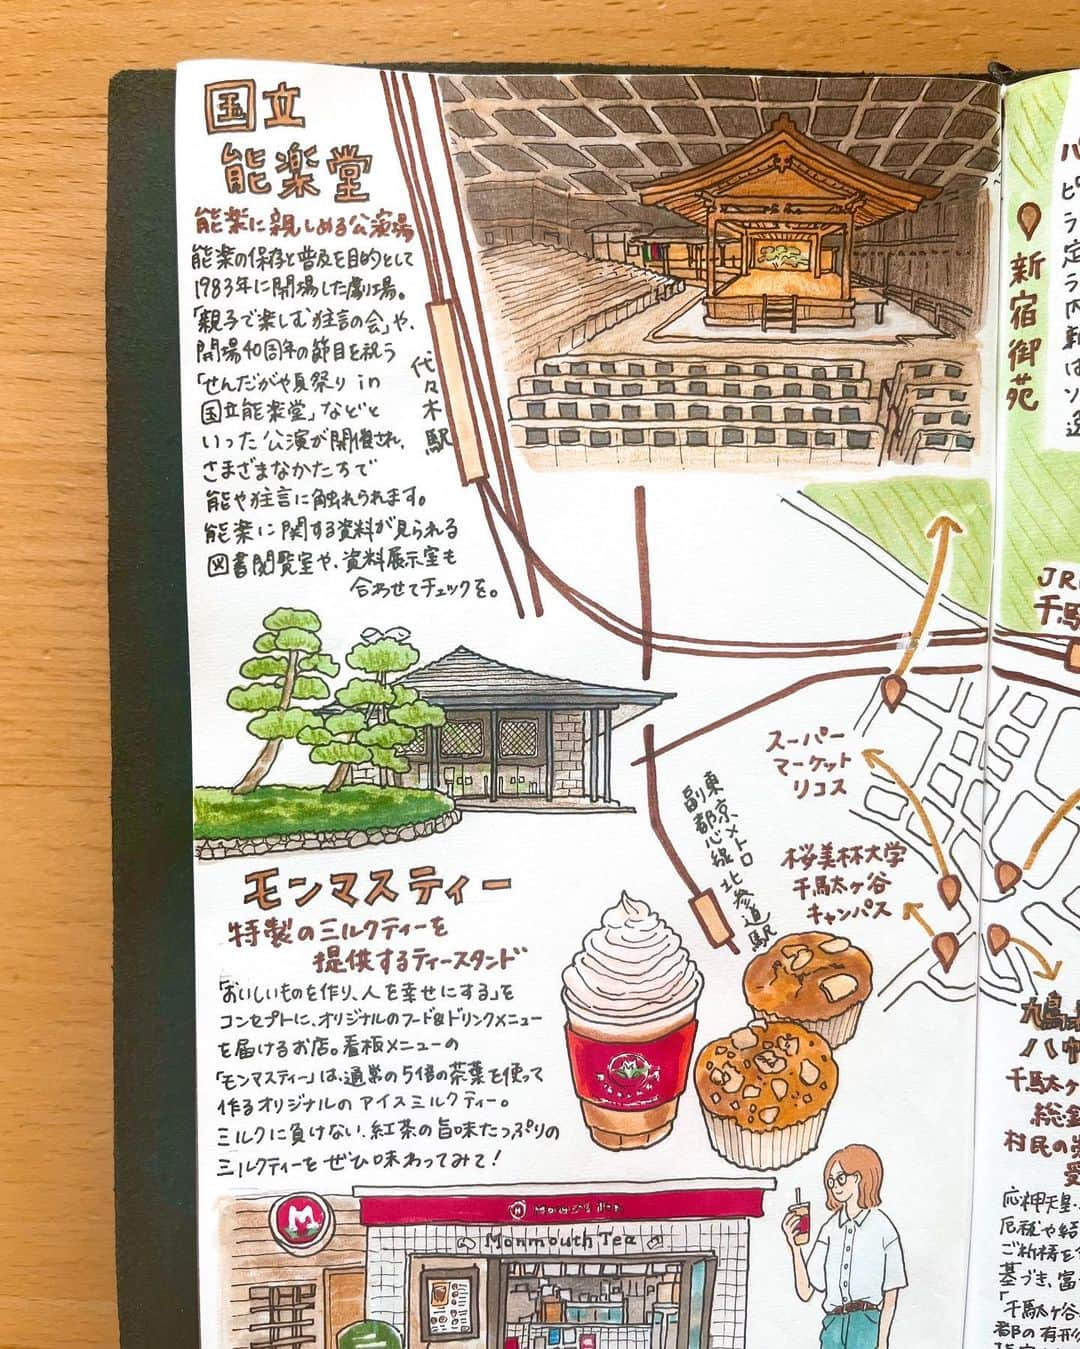 国立
能楽堂
能楽に親しめる公演場
能楽の保存と普及を目的として
1983年に開場した劇場。
「親子で楽しむ狂言の会」や、
開場40周年の節目を祝う
「せんだがや夏祭り in
国立能楽堂」などと
いった公演が開催され、
さまざまなかたちで
能や狂言に触れられます。
能楽に関する資料が見られる
図書閲覧室や、資料展示室も
合わせてチェックを。
代々木駅
新宿御苑
JR
千駄
スーパー
マーケット
リコス
東京メトロ
副都心線 北参道駅
桜美林大学
千駄ヶ谷
キャンパス
モンマスティー
特製のミルクティーを
提供するティースタンド
「おいしいものを作り、人を幸せにする」を
コンセプトに、オリジナルのフード&ドリンクメニュー
を届けるお店。看板メニューの
「モンマスティー」は、通常の5倍の茶葉を使って
作るオリジナルのアイスミルクティー。
ミルクに負けない、紅茶の旨味たっぷりの
ミルクティーをぜひ味わってみて!
M
Monmouth Tea
鳩
八幡
千駄ヶ
総鎮
村民の
受
応神天皇
厄祓や結
ご祈祷を
基づき、富
「千駄ヶ谷
都の有形